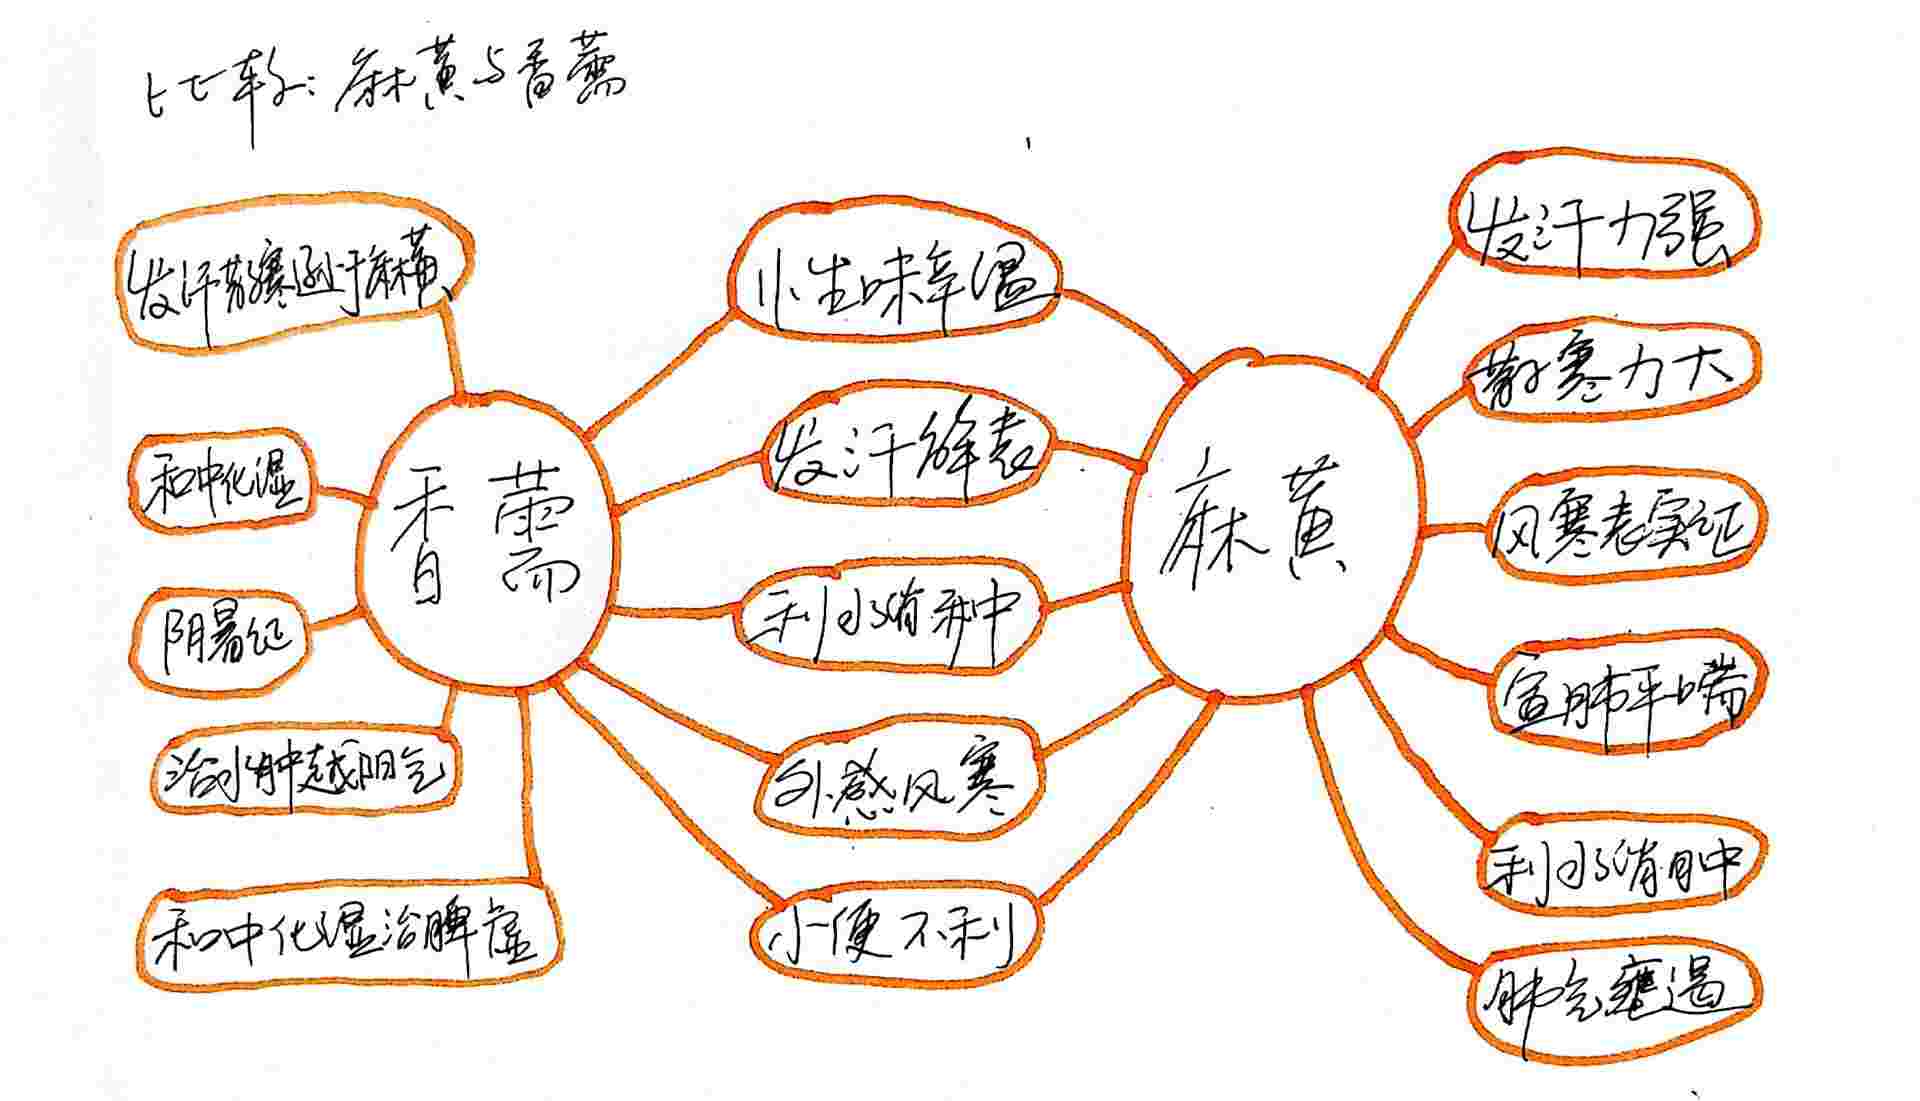 比较:麻黄与香薷
发汗散寒逊于麻黄
和中化湿
阴暑证
治水肿越阳气
和中化湿治脾虚
香薷
性味辛温
发汗解表
利水消肿
外感风寒
小便不利
麻黄
发汗力强
散寒力大
风寒表实证
宣肺平喘
利水消肿
肺气壅遏